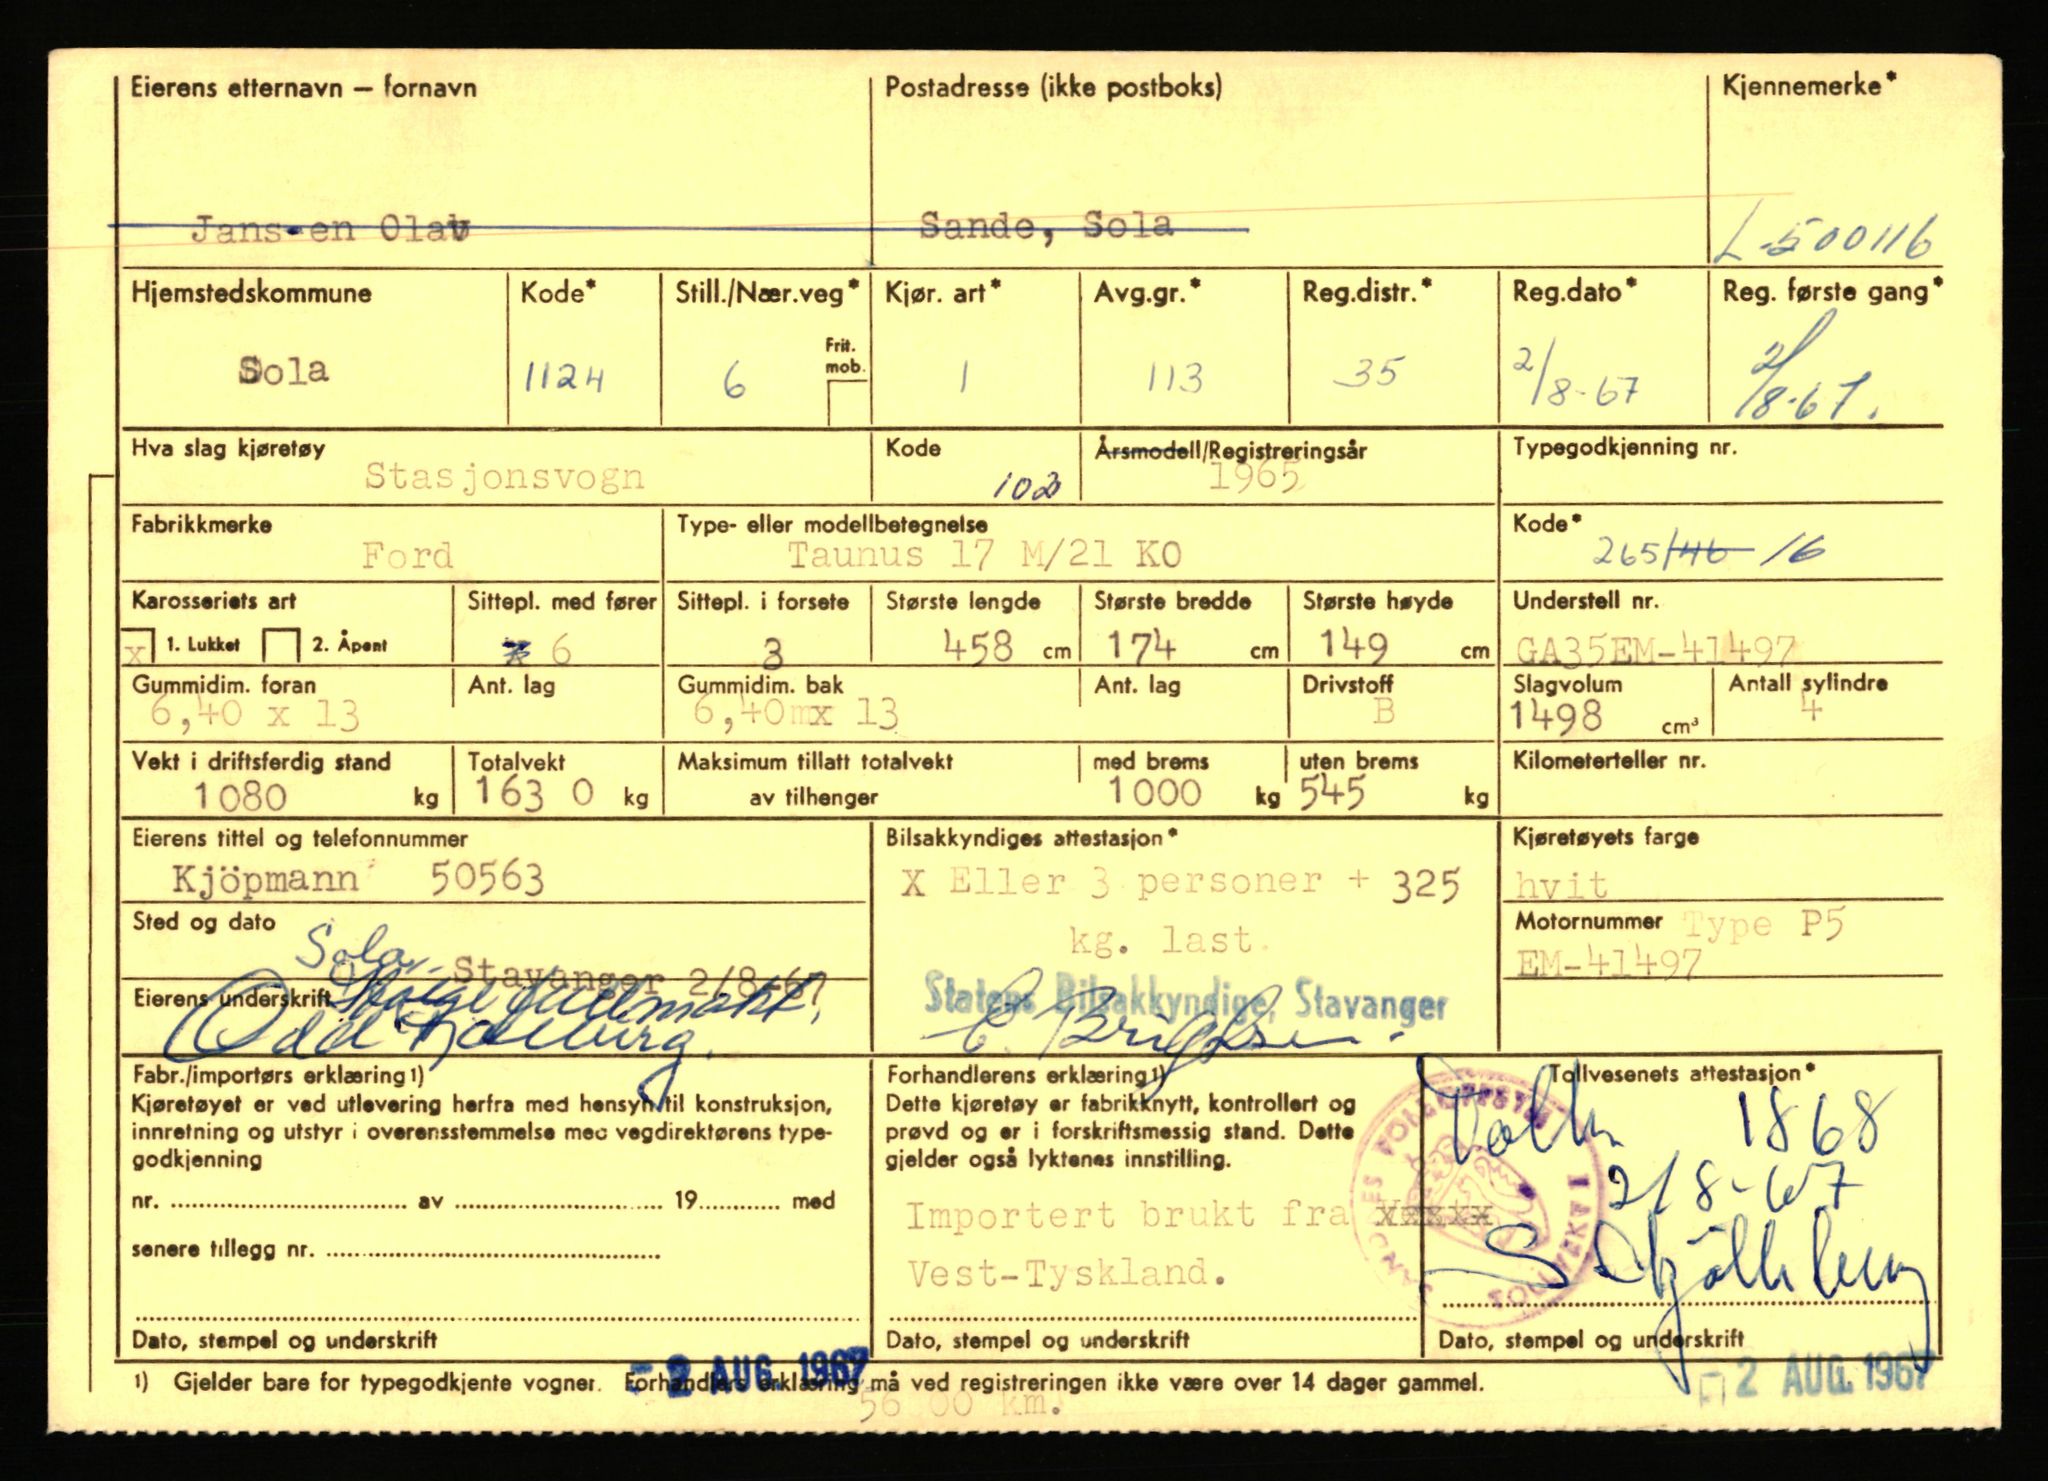 Eierens etternavn – fornavn
Postadresse (ikke postboks)
Kjennemerke*
Jans-en Olav
Sande, Sola
L-500116
Hjemstedskommune
Kode*
Still./Nær.veg*
Kjør. art*
Avg.gr.*
Reg.distr.*
Reg.dato*
Reg. første gang*
Sola
1124
6
Frit. mob.
1
113
35
2/8-67
2/8-67.
Hva slag kjøretøy
Kode
Årsmodell/Registreringsår
Typegodkjenning nr.
Stasjonsvogn
102
1965
Fabrikkmerke
Type- eller modellbetegnelse
Kode*
Ford
Taunus 17 M/21 KO
265/46 16
Karosseriets art
Sittepl. med fører
Sittepl. i forsete
Største lengde
Største bredde
Største høyde
Understell nr.
x 1. Lukket
2. Åpent
6
3
458 cm
174 cm
149 cm
GA35EM-41497
Gummidim. foran
Ant. lag
Gummidim. bak
Ant. lag
Drivstoff
Slagvolum
Antall sylindre
6,40 x 13
6,40mx 13
B
1498 cm³
4
Vekt i driftsferdig stand
Totalvekt
Maksimum tillatt totalvekt
med brems
uten brems
Kilometerteller nr.
1080 kg
163 0 kg
av tilhenger
1000 kg
545 kg
Eierens tittel og telefonnummer
Bilsakkyndiges attestasjon*
Kjøretøyets farge
Kjöpmann 50563
X Eller 3 personer + 325
kg. last.
hvit
Sted og dato
Motornummer Type P5
EM-41497
Sola
Stavanger 2/8-67
Eierens underskrift
Ifølge fullmakt,
Odd
Statens Bilsakkyndige, Stavanger
Fabr./importørs erklæring1)
Kjøretøyet er ved utlevering herfra med hensyn til konstruksjon,
innretning og utstyr i overensstemmelse med vegdirektørens type-
godkjenning
nr. av 19 med
senere tillegg nr.
Dato, stempel og underskrift
Forhandlerens erklæring1)
Dette kjøretøy er fabrikknytt, kontrollert og
prøvd og er i forskriftsmessig stand. Dette
gjelder også lyktenes innstilling.
Importert brukt fra xxxxx
Vest-Tyskland.
Dato, stempel og underskrift
Tollvesenets attestasjon*
1868
2/8-67
Dato, stempel og underskrift
1) Gjelder bare for typegodkjente vogner. Forhandlers erklæring må ved registreringen ikke være over 14 dager gammel.
- 2 AUG. 1967
2 AUG. 1967
56 00 km.